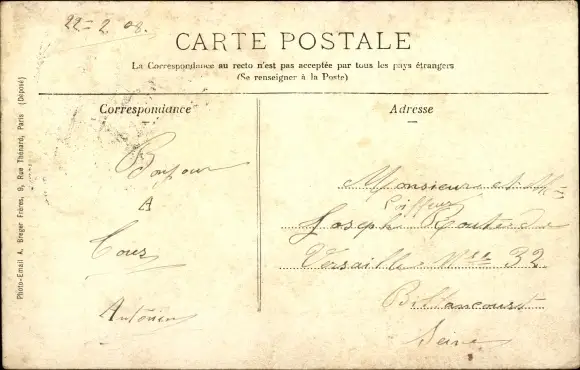 22-2. 08.
CARTE POSTALE
La Correspondance au recto n'est pas acceptée par tous les pays étrangers
(Se renseigner à la Poste)
Correspondance
Adresse
Bonjour
A
Tous
Antonin
Monsieure et
Coiffeur
Joseph
Versaille N° 32
Billancourt
Seine
Photo-Email A. Breger Frères, 9, Rue Thénard, Paris (Déposé)